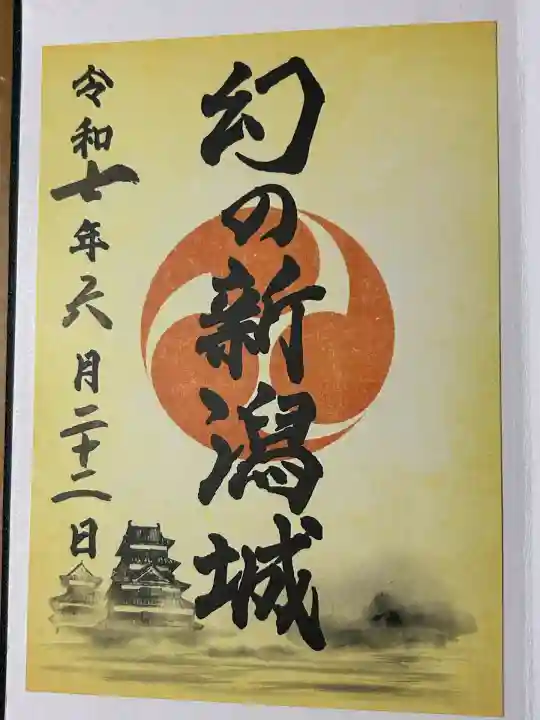 幻の新潟城
令和七年六月二十二日